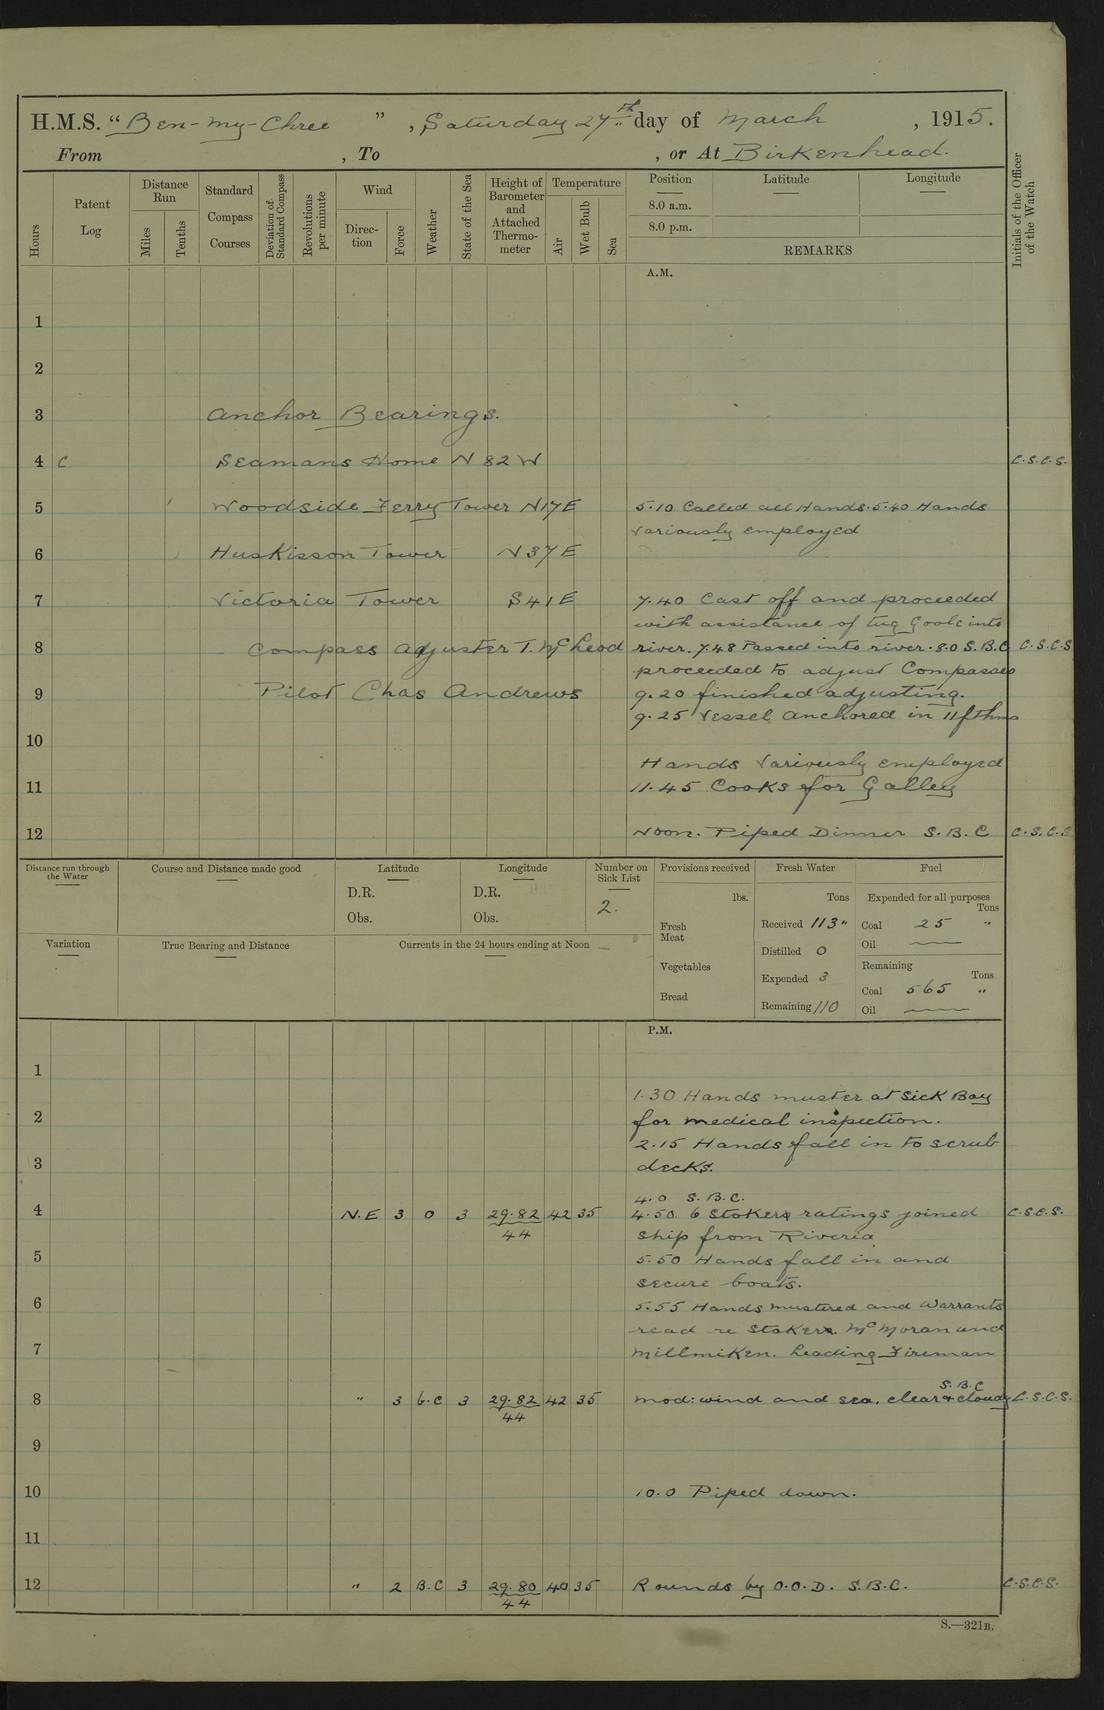 H.M.S. "Ben-my-Chree", Saturday 27th day of March, 1915.
From , To , or At Birkenhead.
Hours
Patent Log
Distance Run
Miles
Tenths
Standard Compass Courses
Deviation of Standard Compass
Revolutions per minute
Wind
Direction
Force
Weather
State of the Sea
Height of Barometer and Attached Thermometer
Temperature
Air
Wet Bulb
Sea
Position
8.0 a.m.
8.0 p.m.
Latitude
Longitude
REMARKS
Initials of the Officer of the Watch
A.M.
1
2
3 Anchor Bearings.
4 C Seamans Home N 82 W C.S.C.S.
5 Woodside Ferry Tower N17E 5.10 Called all Hands. 5.40 Hands
variously employed
6 Huskisson Tower N37E
7 Victoria Tower S41E 7.40 Cast off and proceeded
with assistance of tug Goole into
8 Compass Adjuster T. McLeod river. 7.48 Passed into river. 8.0 S.B.C C.S.C.S
proceeded to adjust Compasses
9 Pilot Chas Andrews 9.20 finished adjusting.
9.25 Vessel anchored in 11 fthms
10
Hands variously employed
11 11.45 Cooks for Galley
12 Noon. Piped Dinner S.B.C C.S.C.S
Distance run through the Water
Course and Distance made good
Latitude
D.R.
Obs.
Longitude
D.R.
Obs.
Number on Sick List
2.
Provisions received
lbs.
Fresh Meat
Vegetables
Bread
Fresh Water
Tons
Received 113 "
Distilled 0
Expended 3
Remaining 110
Fuel
Expended for all purposes
Tons
Coal 25 "
Oil
Remaining
Tons
Coal 565 "
Oil
Variation
True Bearing and Distance
Currents in the 24 hours ending at Noon
P.M.
1
1.30 Hands muster at Sick Bay
2 for medical inspection.
2.15 Hands fall in to scrub
3 decks.
4.0 S.B.C.
4 N.E 3 0 3 29.82 42 35 4.50 6 Stoker ratings joined C.S.C.S.
44 ship from Riveria
5 5.50 Hands fall in and
secure boats.
6 5.55 Hands mustered and Warrants
read re Stokers McMoran and
7 Millmiken. Leading Fireman
S.B.C
8 " 3 b.c 3 29.82 42 35 Mod: wind and sea, clear & cloudy C.S.C.S.
44
9
10 10.0 Piped down.
11
12 " 2 B.C 3 29.80 40 35 Rounds by O.O.D. S.B.C. C.S.C.S.
44
S.—321B.